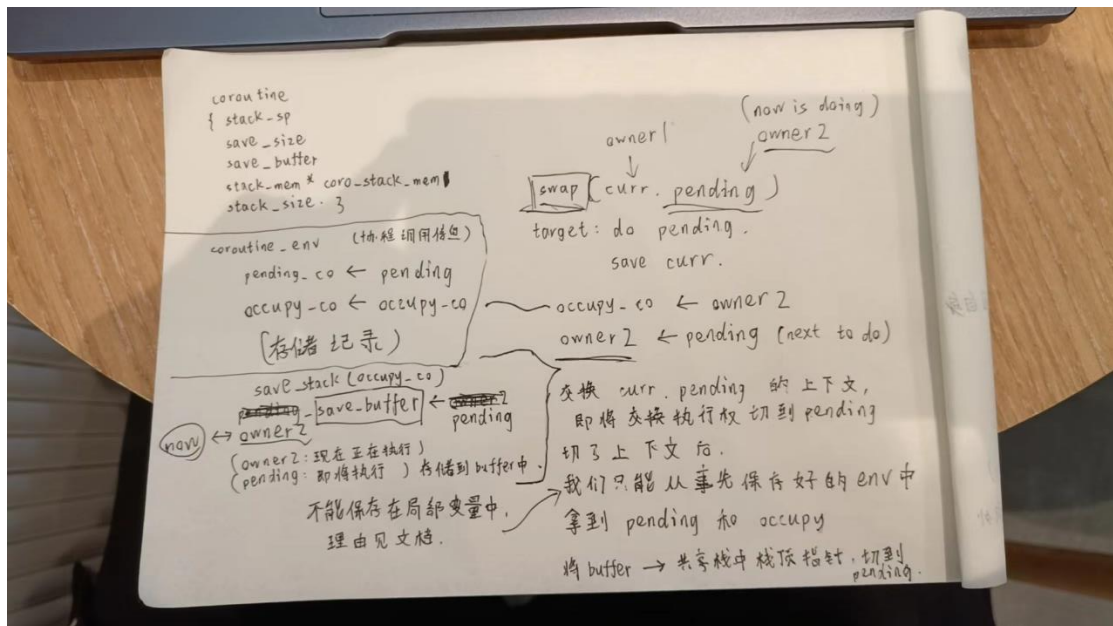 coroutine
{ stack_sp
save_size
save_buffer
stack_mem* coro_stack_mem
stack_size. }
coroutine_env (协程调用信息)
pending_co ← pending
occupy_co ← occupy_co
(存储记录)
save_stack (occupy_co)
save_buffer ← pending
now ↔ owner2
(owner2: 现在正在执行)
(pending: 即将执行) 存储到buffer中.
不能保存在局部变量中,
理由见文档.
(now is doing)
owner1 owner2
swap (curr. pending)
target: do pending.
save curr.
occupy_co ← owner2
owner2 ← pending (next to do)
交换 curr. pending 的上下文,
即将交换执行权切到pending
切了上下文后.
我们只能从事先保存好的env中
拿到 pending 和 occupy
将buffer → 共享栈中栈顶指针, 切到
pending.